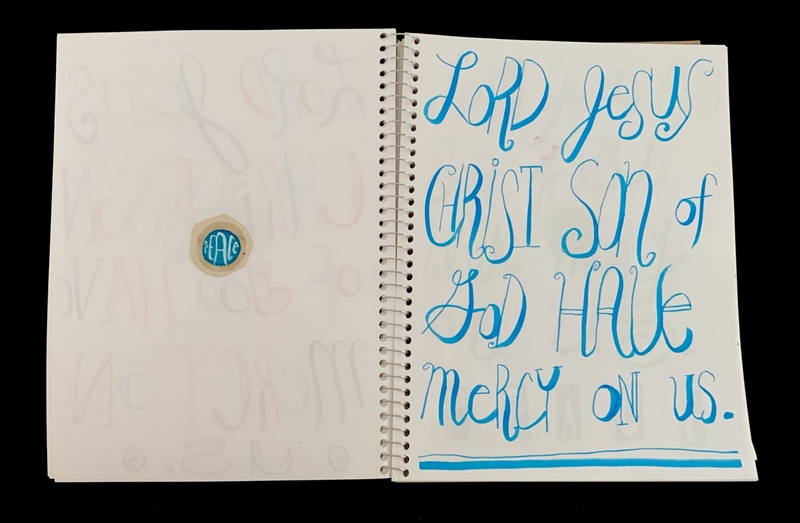 PEACe
LORD JESUS
CHRIST SON of
GOD HAVe
MeRCY ON US.